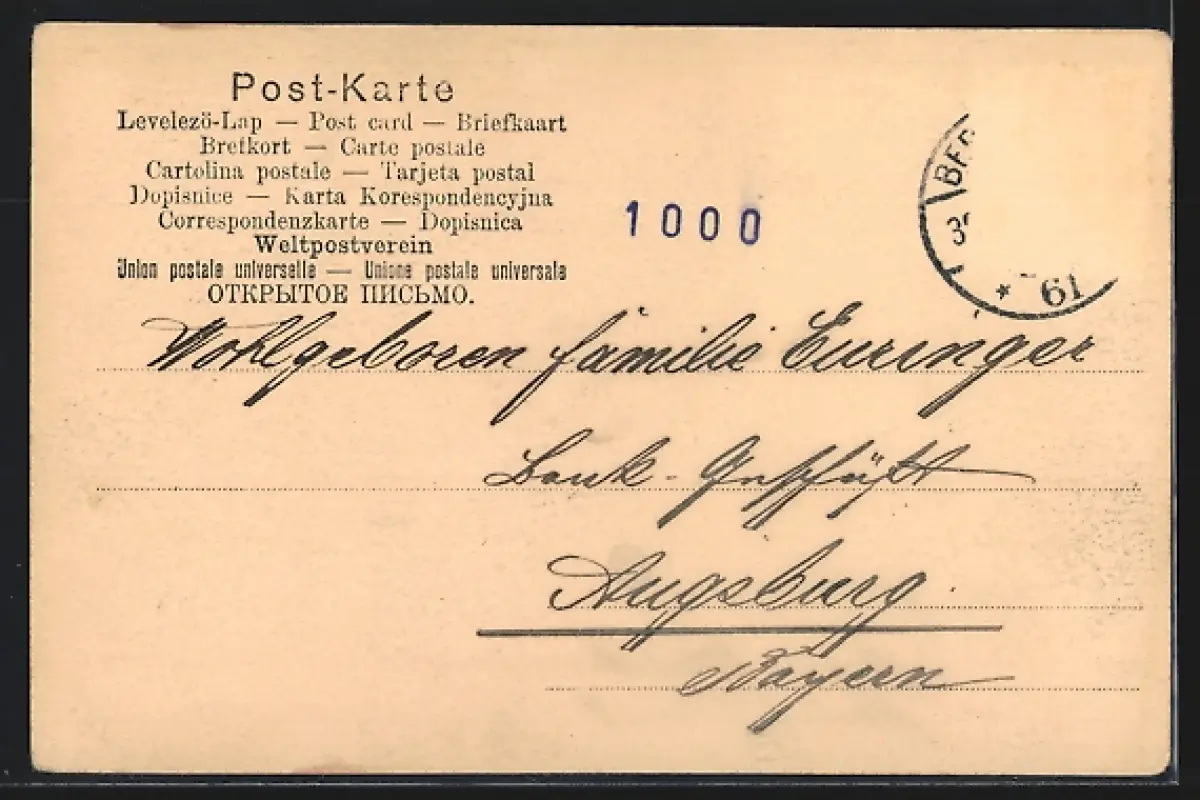 Post-Karte
Levelezö-Lap — Post card — Briefkaart
Brefkort — Carte postale
Cartolina postale — Tarjeta postal
Dopisnice — Karta Korespondencyjna
Correspondenzkarte — Dopisnica
Weltpostverein
Union postale universelle — Unione postale universale
ОТКРЫТОЕ ПИСЬМО.
1000
BER
3
* 61
Wohlgeboren familie Euringer
Bank-Geschäft
Augsburg.
Bayern